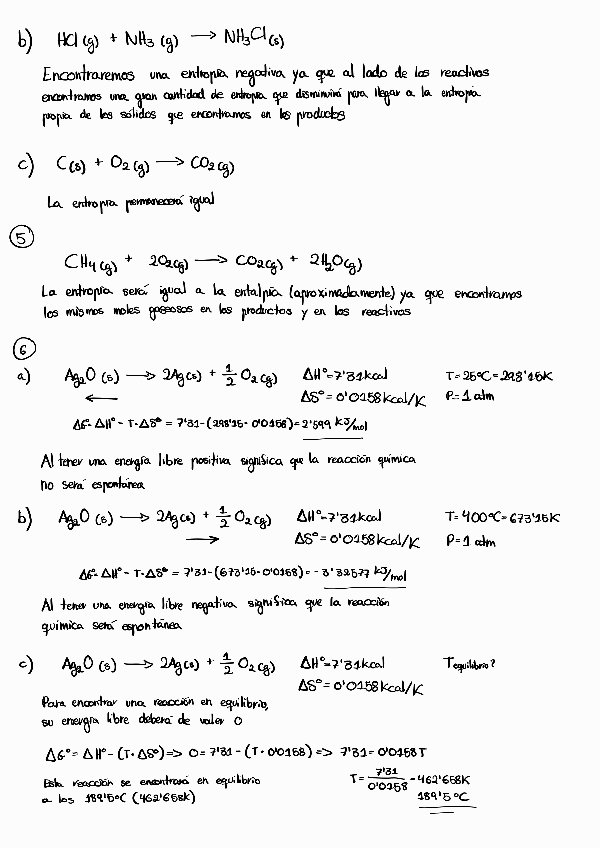 b) HCl (g) + NH3 (g) → NH3Cl (s)
Encontraremos una entropía negativa ya que al lado de los reactivos
encontramos una gran cantidad de entropía que disminuirá para llegar a la entropía
propia de los sólidos que encontramos en los productos
c) C(s) + O2 (g) → CO2 (g)
La entropía permanecerá igual
5
CH4 (g) + 2O2(g) → CO2(g) + 2H2O(g)
La entropía será igual a la entalpía (aproximadamente) ya que encontramos
los mismos moles gaseosos en los productos y en los reactivos
6
a) Ag2O (s) → 2Ag(s) + 1/2 O2(g) ΔH°=7'31kcal T=25°C=298'15K
← ΔS°=0'0158kcal/K P=1 atm
ΔG=ΔH°-T·ΔS°=7'31-(298'15·0'0158)=2'599 kJ/mol
Al tener una energía libre positiva significa que la reacción química
no será espontánea
b) Ag2O (s) → 2Ag(s) + 1/2 O2(g) ΔH°=7'31kcal T=400°C=673'15K
→ ΔS°=0'0158kcal/K P=1 atm
ΔG=ΔH°-T·ΔS°=7'31-(673'15·0'0158)=-3'32577 kJ/mol
Al tener una energía libre negativa significa que la reacción
química será espontánea
c) Ag2O (s) → 2Ag(s) + 1/2 O2(g) ΔH°=7'31kcal Tequilibrio?
ΔS°=0'0158kcal/K
Para encontrar una reacción en equilibrio,
su energía libre deberá de valer 0
ΔG°=ΔH°-(T·ΔS°)=> 0=7'31-(T·0'0158)=> 7'31=0'0158T
Esta reacción se encontrará en equilibrio T=7'31/0'0158=462'658K
a los 189'5°C (462'658K) 189'5°C